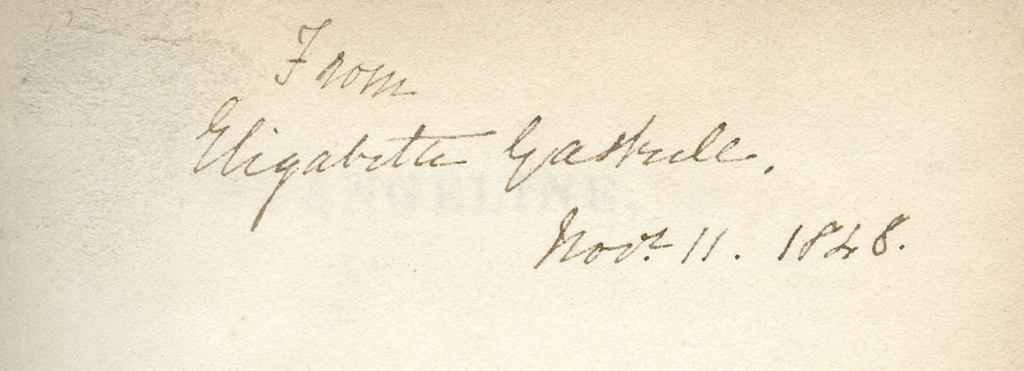 From
Elizabeth Gaskell.
EVANGELINE,
Novr. 11. 1848.